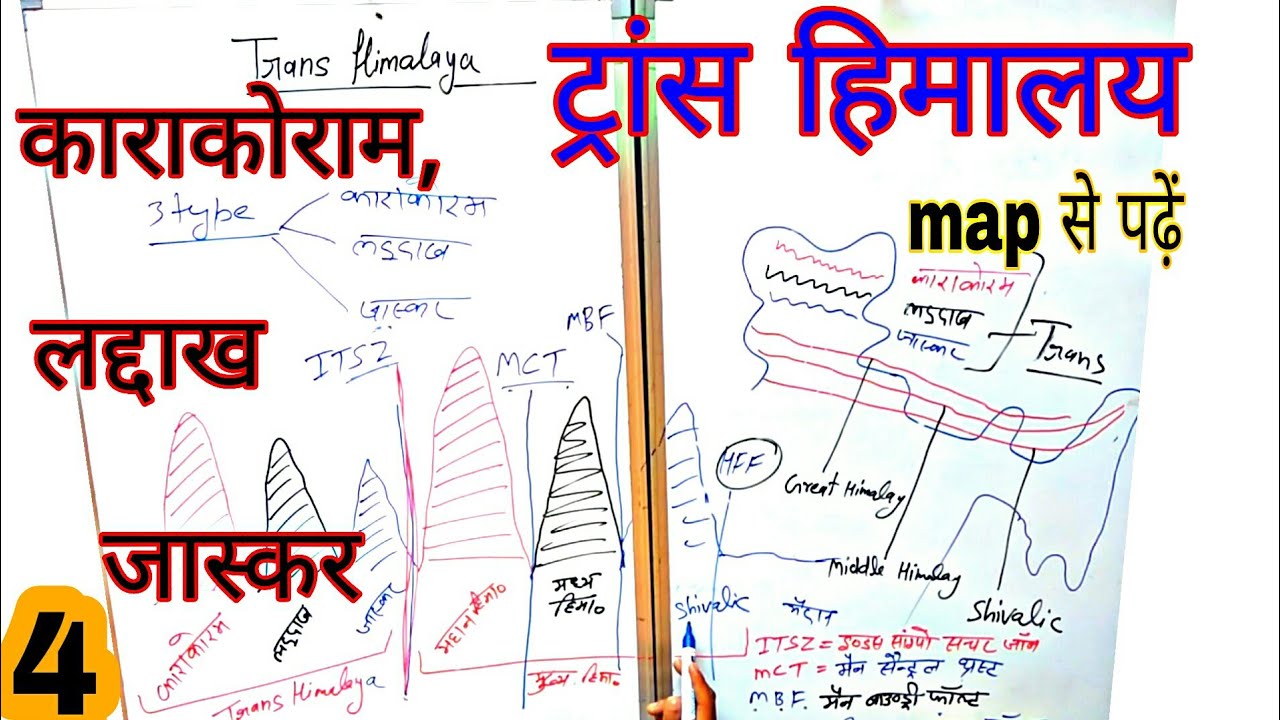 Trans Himalaya
ट्रांस हिमालय
काराकोराम,
map से पढ़ें
3 type
काराकोरम
लद्दाख
जास्कर
लद्दाख
ITSZ
MCT
MBF
काराकोरम
लद्दाख
जास्कर
Trans
HFF
Great Himalay
Middle Himalay
Shivalic
जास्कर
4
काराकोरम
लद्दाख
जास्कर
Trans Himalaya
महान हिमा०
मध्य
हिमा०
Shivalic
मुख्य हिमा०
मैदान
ITSZ = इण्डस सांगपो सचर जॉन
MCT = मैन सैन्ट्रल थ्रस्ट
M.B.F. मैन बाउण्ड्री फॉल्ट